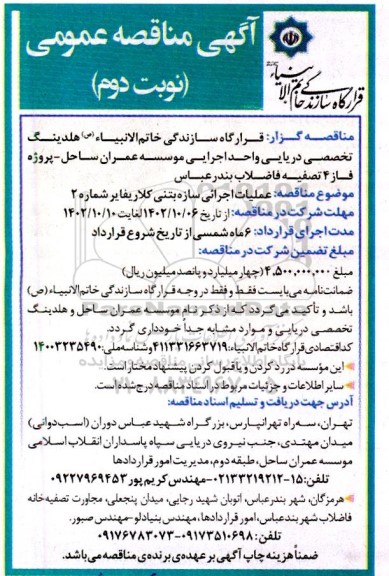 آگهی مناقصه عمومی
(نوبت دوم)
قرارگاه سازندگی خاتم الانبیاء
مناقصه گزار: قرارگاه سازندگی خاتم‌الانبیاء (ص) هلدینگ
تخصصی دریایی واحد اجرایی موسسه عمران ساحل-پروژه
فاز ۴ تصفیه فاضلاب بندرعباس
موضوع مناقصه: عملیات اجرائی سازه بتنی کلاریفایر شماره ۲
مهلت شرکت در مناقصه: از تاریخ ۱۴۰۲/۱۰/۰۶ لغایت ۱۴۰۲/۱۰/۱۰
مدت اجرای قرارداد: ۶ ماه شمسی از تاریخ شروع قرارداد
مبلغ تضمین شرکت در مناقصه:
مبلغ ۴,۵۰۰,۰۰۰,۰۰۰ (چهار میلیارد و پانصد میلیون ریال)
ضمانتنامه می‌بایست فقط و فقط در وجه قرارگاه سازندگی خاتم‌الانبیاء (ص)
باشد و تأکید می‌گردد که از ذکر نام موسسه عمران ساحل و هلدینگ
تخصصی دریایی و موارد مشابه جداً خودداری گردد.
کد اقتصادی قرارگاه خاتم‌الانبیاء: ۴۱۱۳۳۱۶۶۳۷۱۹ و شناسه ملی: ۱۴۰۰۳۲۳۵۴۹۰
این مؤسسه در رد کردن و یا قبول کردن پیشنهاد مختار است.
سایر اطلاعات و جزئیات مربوط در اسناد مناقصه درج شده است.
آدرس جهت دریافت و تسلیم اسناد مناقصه:
تهران، سه‌راه تهرانپارس، بزرگراه شهید عباس دوران (اسب‌دوانی)
میدان مهتدی، جنب نیروی دریایی سپاه پاسداران انقلاب اسلامی
موسسه عمران ساحل، طبقه دوم، مدیریت امور قراردادها
تلفن: ۱۵-۰۲۱۳۳۲۱۹۲۱۲-مهندس کریم پور ۰۹۲۲۷۹۶۹۴۵۳
هرمزگان، شهر بندرعباس، اتوبان شهید رجایی، میدان پنجعلی، مجاورت تصفیه‌خانه
فاضلاب شهر بندرعباس، امور قراردادها، مهندس بنیادلو-مهندس صبور.
تلفن: ۰۹۱۷۳۵۱۰۶۹۸-۰۹۱۷۶۷۸۳۰۷۳
ضمناً هزینه چاپ آگهی بر عهده‌ی برنده‌ی مناقصه می‌باشد.